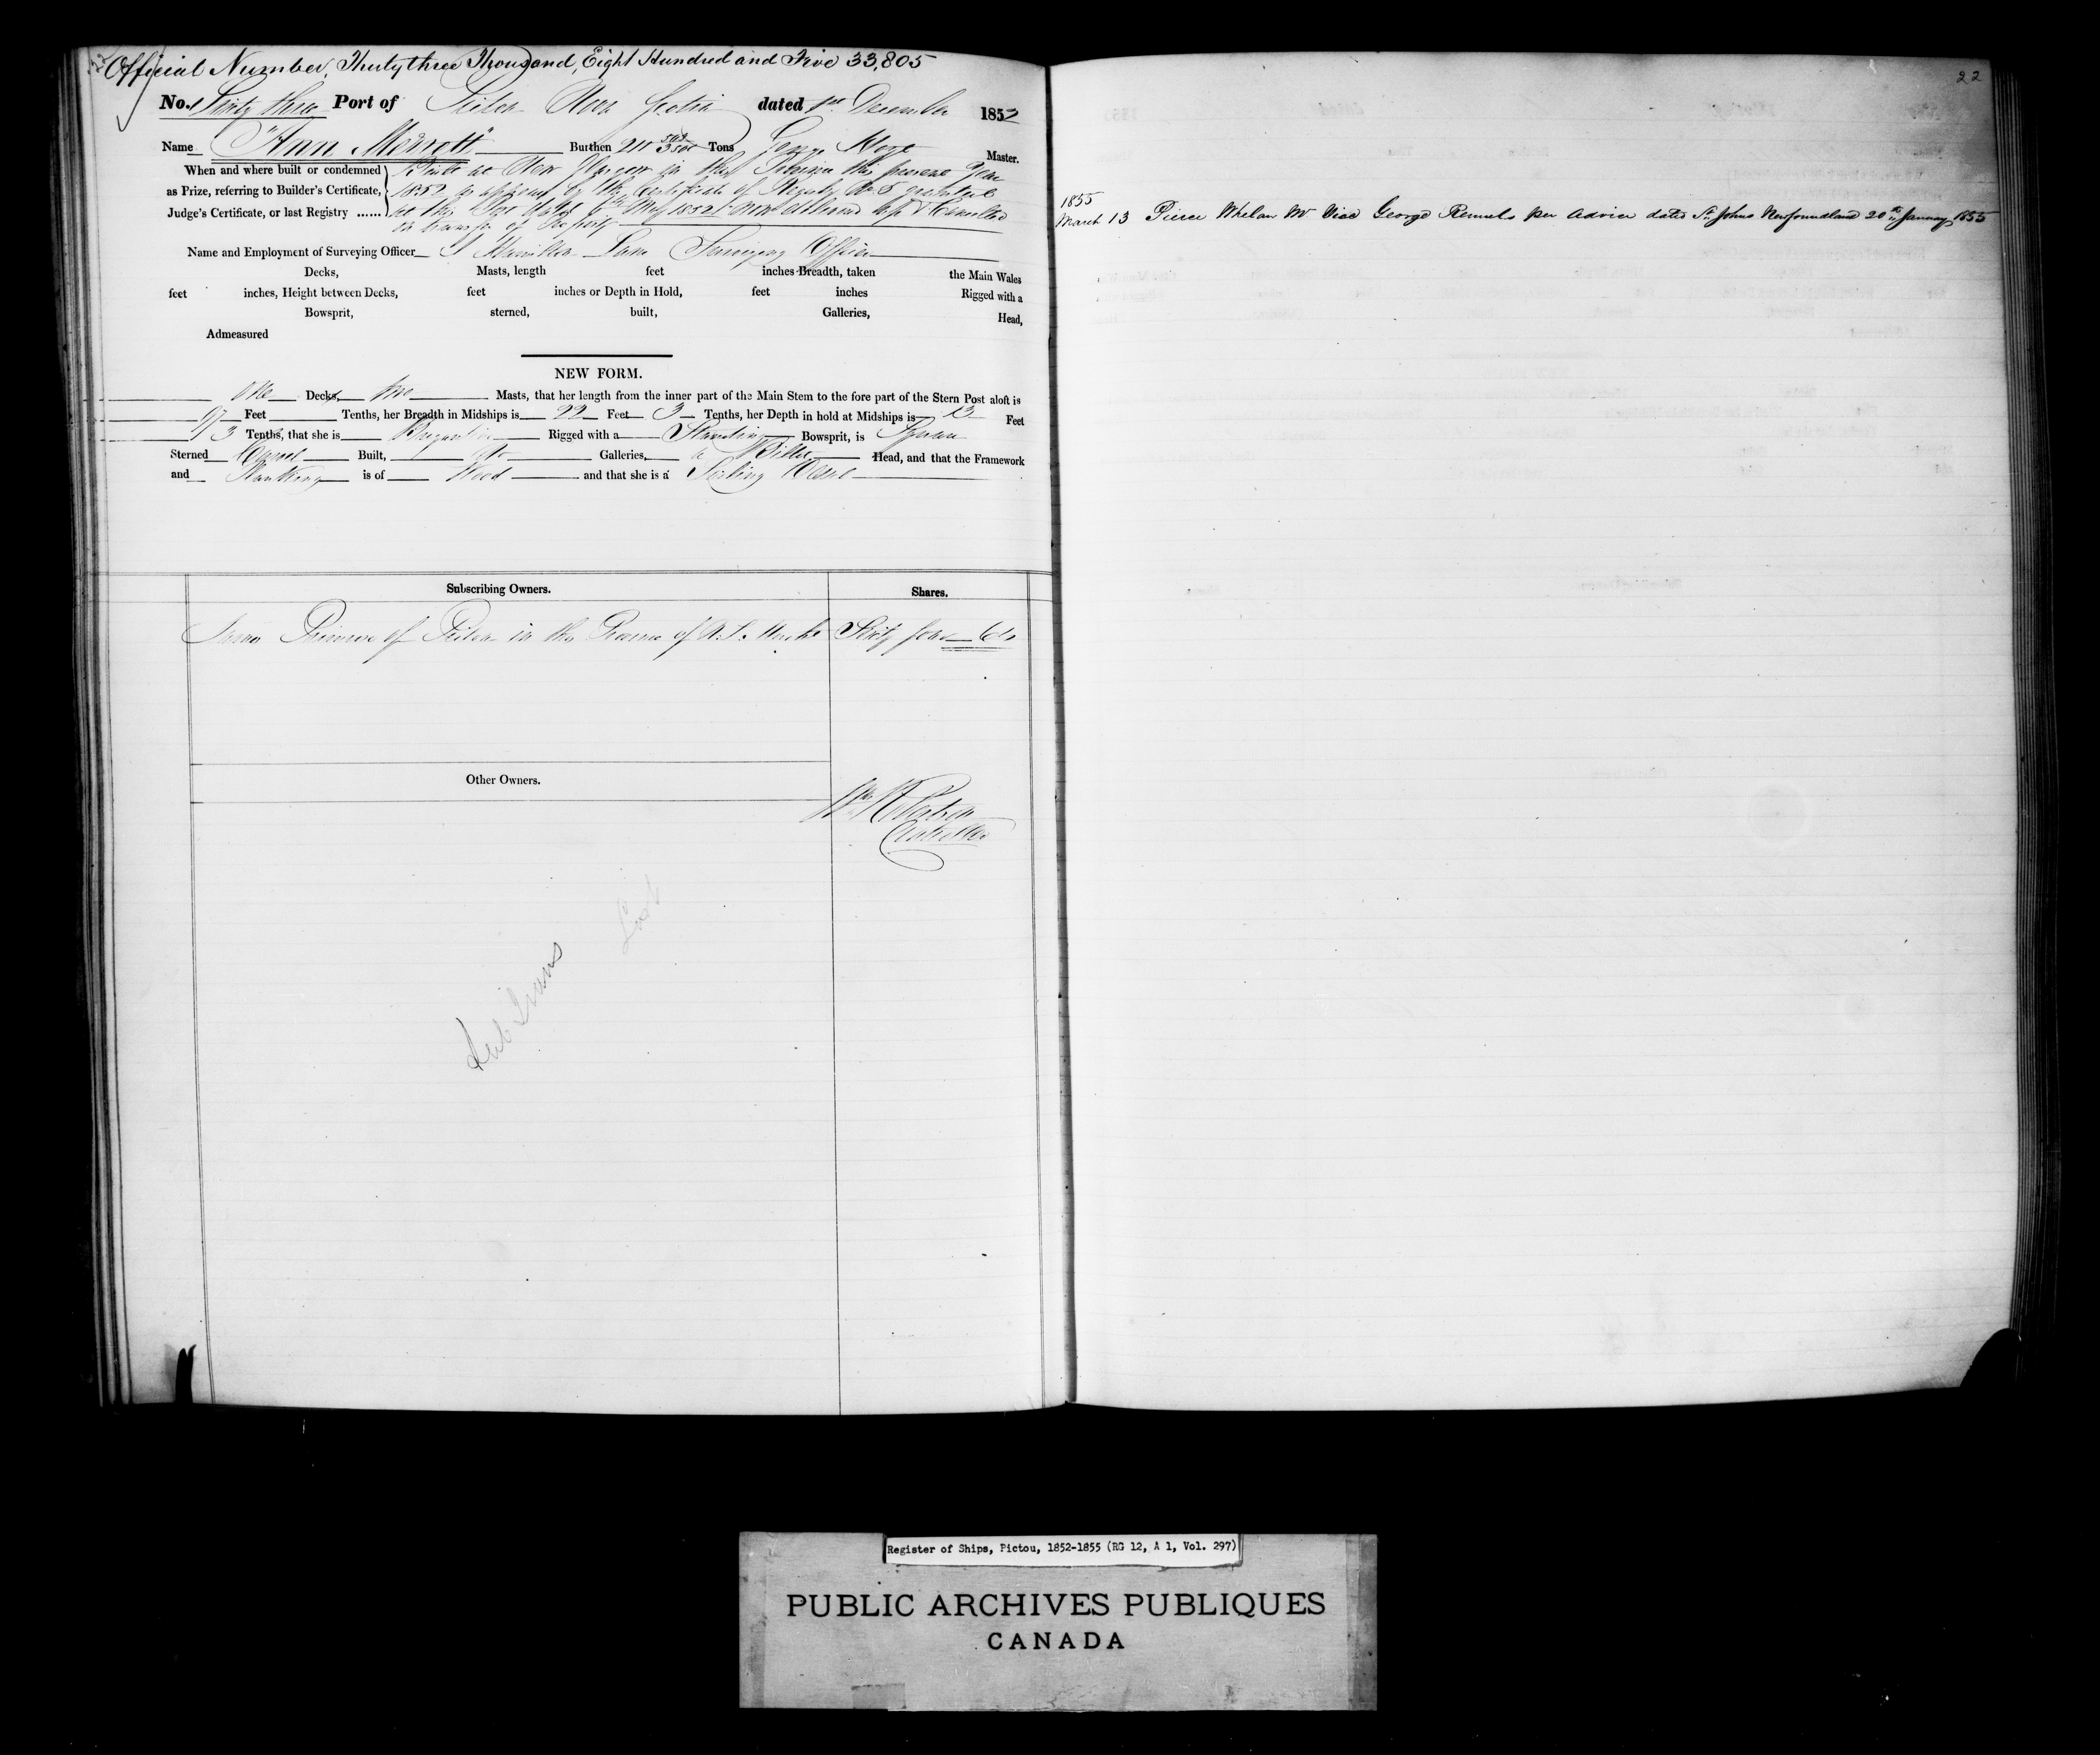 Official Number, Thirty three Thousand, Eight Hundred and Five 33,805
No. Thirty three Port of Pictou Nova Scotia dated 1st December 1852
Name "Ann Merrott" Burthen Tons George Master.
When and where built or condemned Built at New Glasgow in this Province this present Year
as Prize, referring to Builder's Certificate, 1852 as appears by the Certificate of Registry No 5 granted
Judge's Certificate, or last Registry ...... at this Port dated May 1852 now delivered up & Cancelled
on transfer of Property
Name and Employment of Surveying Officer Surveying Officer
Decks, Masts, length feet inches Breadth, taken the Main Wales
feet inches, Height between Decks, feet inches or Depth in Hold, feet inches Rigged with a
Bowsprit, sterned, built, Galleries, Head,
Admeasured
NEW FORM.
One Decks, two Masts, that her length from the inner part of the Main Stem to the fore part of the Stern Post aloft is
97 Feet Tenths, her Breadth in Midships is 22 Feet 3 Tenths, her Depth in hold at Midships is 13 Feet
3 Tenths, that she is Brigantine Rigged with a Standing Bowsprit, is Square
Sterned Carvel Built, no Galleries, a Billet Head, and that the Framework
and Planking is of Wood and that she is a Sailing Vessel
Subscribing Owners. Shares.
Primrose of Pictou in the Province of N. S. Sixty four 64
Other Owners.
Wm Robertson
Controller
Lost
Sub Trans
22
1855
March 13 Pierce Whelan Mr Vice George Rennels per Advice dated St. Johns Newfoundland 20th January 1855
Register of Ships, Pictou, 1852-1855 (RG 12, A 1, Vol. 297)
PUBLIC ARCHIVES PUBLIQUES
CANADA